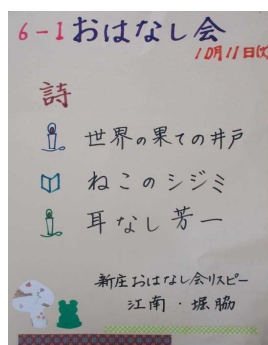 6-1 おはなし会
10月11日(火)
詩
世界の果ての井戸
ねこのシジミ
耳なし芳一
新庄おはなし会リスピー
江南・堀脇